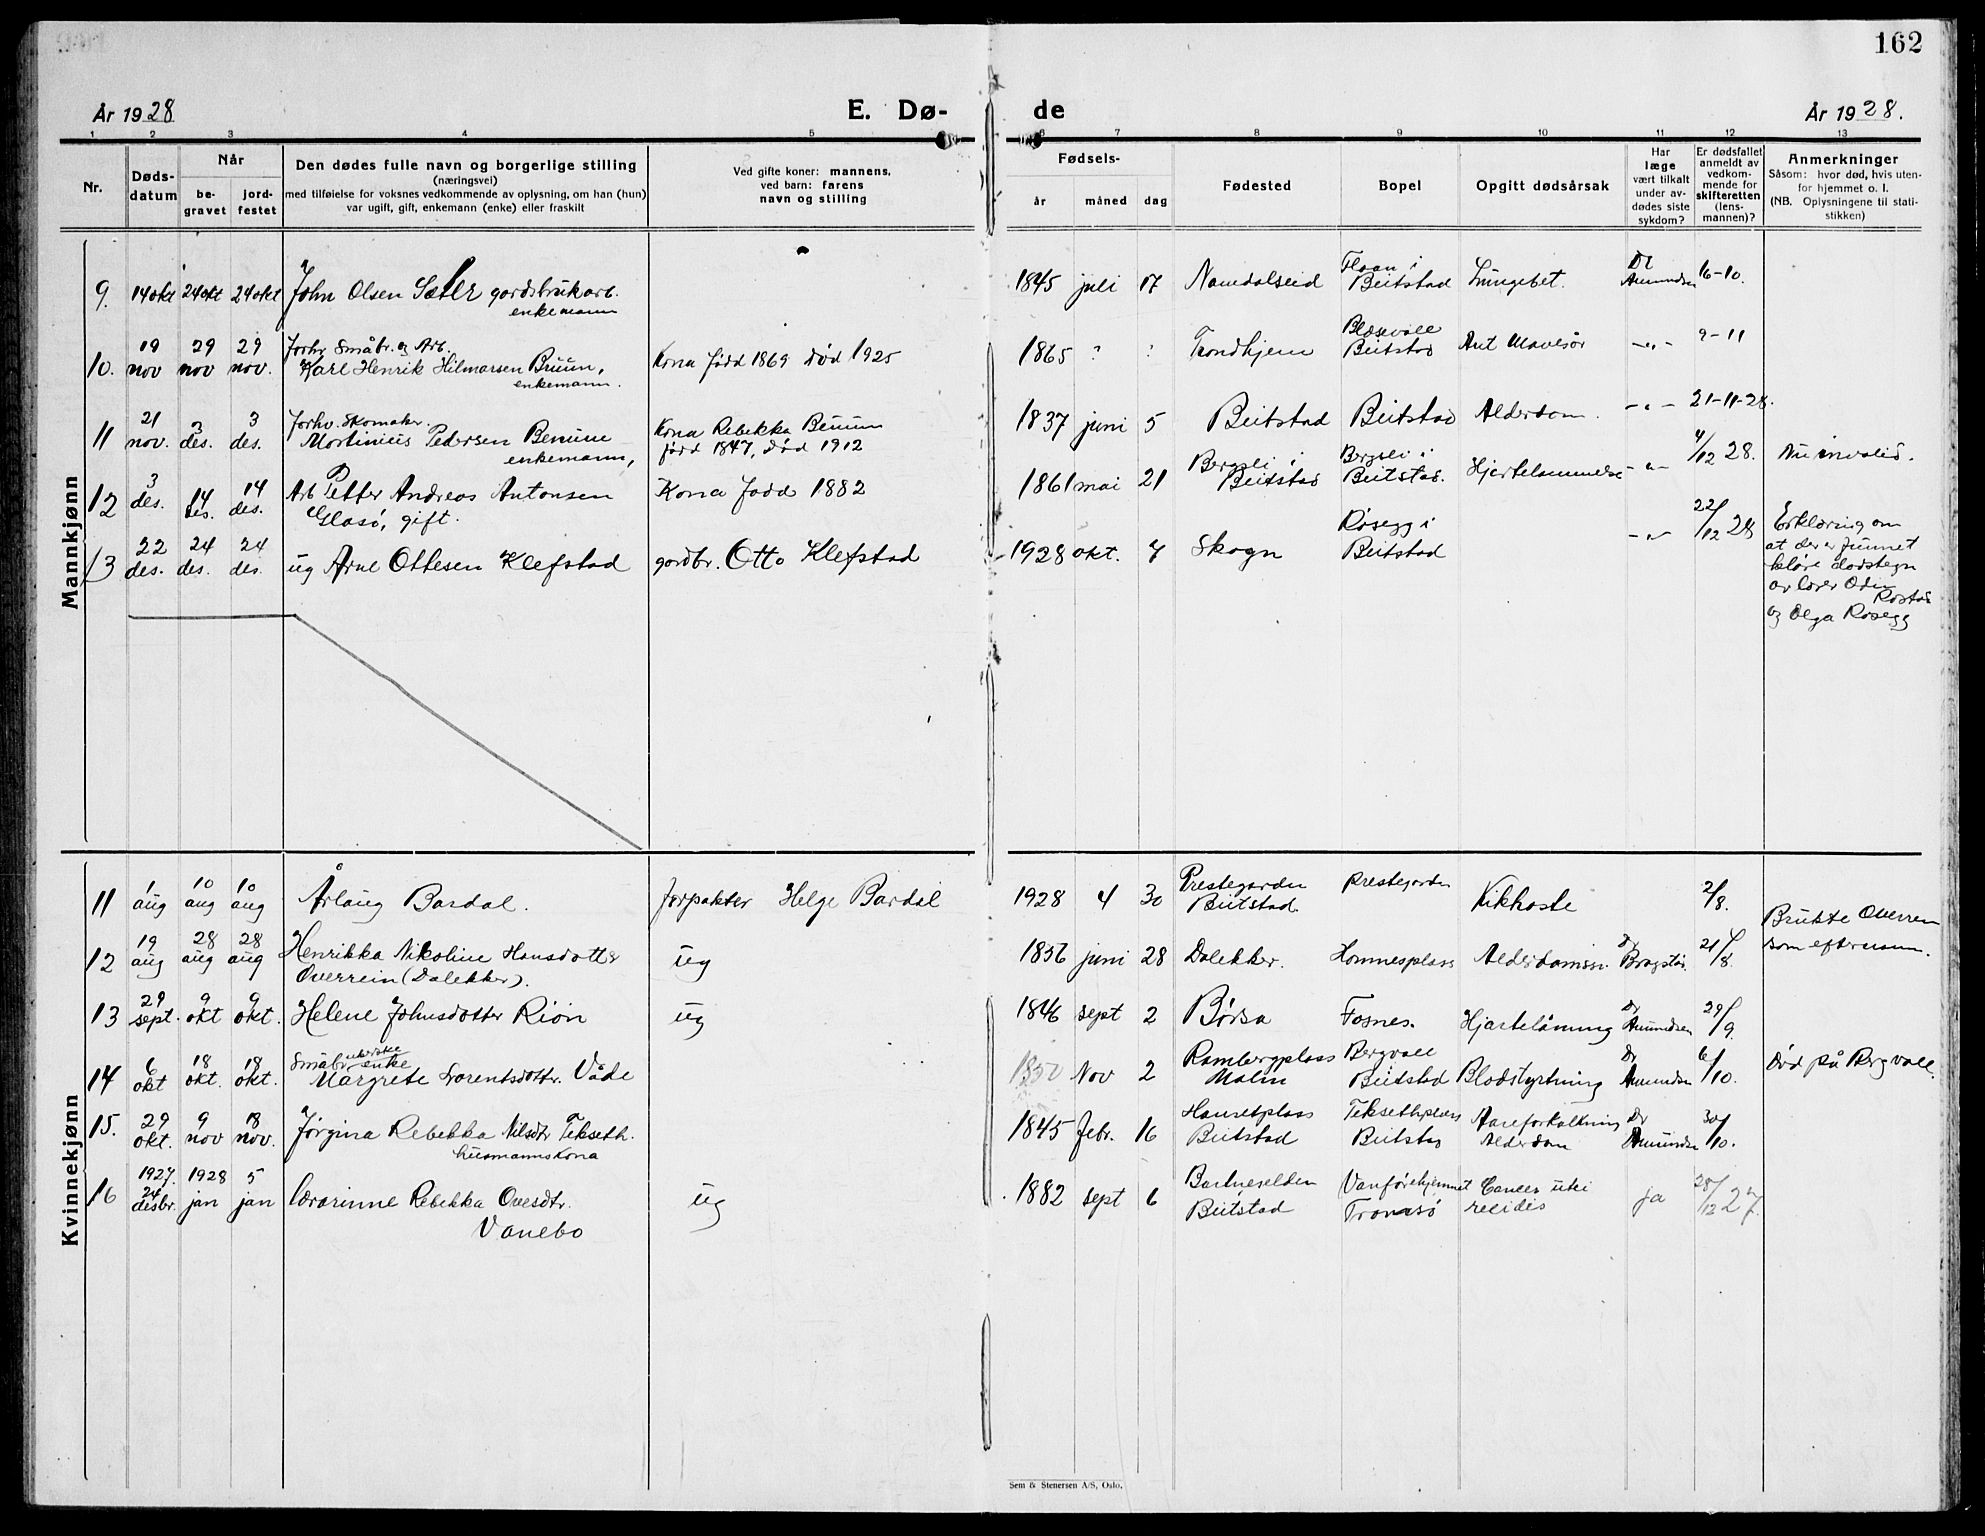 162
År 1928
E. Dø-
de
År 1928.
1 2 3 4 5 6 7 8 9 10 11 12 13
Nr.
Døds-
datum
Når
be-
gravet
jord-
festet
Den dødes fulle navn og borgerlige stilling
(næringsvei)
med tilføielse for voksnes vedkommende av oplysning, om han (hun)
var ugift, gift, enkemann (enke) eller fraskilt
Ved gifte koner: mannens,
ved barn: farens
navn og stilling
Fødsels-
år måned dag
Fødested
Bopel
Opgitt dødsårsak
Har
læge
vært tilkalt
under av-
dødes siste
sykdom?
Er dødsfallet
anmeldt av
vedkom-
mende for
skifteretten
(lens-
mannen)?
Anmerkninger
Såsom: hvor død, hvis uten-
for hjemmet o. l.
(NB. Oplysningene til stati-
stikken)
Mannkjønn
9. 14 okt 24 okt 24 okt John Olsen Sæter gardsbrukarb.
enkemann
1845 juli 17 Namdalseid
Beitstad Lungebet. Dr Amundsen 16-10.
10. 19 nov 29 nov 29 nov. Forhv Småbr. og Arb.
Karl Henrik Hilmarsen Bruun,
enkemann.
Kona født 1869 død 1925
1865 ? ? Trondhjem
Beitstad -"- 9-11
11 21 nov. 3 des. 3 des. Forhv. Skomaker
Mortinius Pedersen Benum
enkemann,
Kona Rebekka Benum
født 1847, død 1912
1837 juni 5 Beitstad Beitstad Alderdom. -"- 21-11-28.
12 3 des. 14 des. 14 des. Arb Petter Andreas Antonsen
Glasø, gift.
Kona født 1882
1861 mai 21 Bergsli i
Beitstad
Bergsli i
Beitstad. Hjertelammelse -"- 4/12 28.
13 22 des. 24 des. 24 des. ug Arne Ottesen Klefstad
gardbr. Otto Klefstad
1928 okt. 7 Skogn
Røsegg i
Beitstad -"- 22/12 28
Erklæring om
at der er funnet
klåre dødstegn
av lærer Odin
Røstad
og Olga Røsegg
Kvinnekjønn
11 1 aug 10 aug 10 aug Årlaug Bardal.
forpakter Helge Bardal
1928 4 30 Prestegarden
Beitstad.
Prestegarden
Kikhoste 2/8.
12 19 aug 28 aug 28 aug Henrikka Nikoline Hansdotter
Overrein (Dalekker).
ug
1856 juni 28 Dalekker. Hommesplass Dr Bragstad. 21/8.
Brukte Overrein
som efternavn.
13 29 sept. 9 okt 9 okt. Helene Johnsdotter Rion
ug
1846 sept 2 Børsa Fosnes. Hjartelåming Dr Amundsen 29/9.
14 6 okt 18 okt. 18 okt. Småbr enke
Margrete Lorentsdottr. Våde
1850 Nov 2 Rambergplass
Malm
Bergvall
Beitstad Blodstyrtning Dr Amundsen 6/10.
Død på Bergvall.
15. 29 okt. 9 nov 18 nov. Jørgina Rebekka Nilsdtr Tekseth.
husmannskona
1845 Febr. 16
Beitstad
Teksethplass
Beitstad
Aareforkalkning
Alderdom Dr Amundsen 30/10.
16 1927. 24 desbr. 1928 jan 5 jan Rebekka Ovesdtr.
Vanebo
ug
1882 sept 6
Beitstad
Vanførehjemmet
Tromsø
Cancer uteri
ja 28/12 27.
Sem & Stenersen A/S, Oslo.